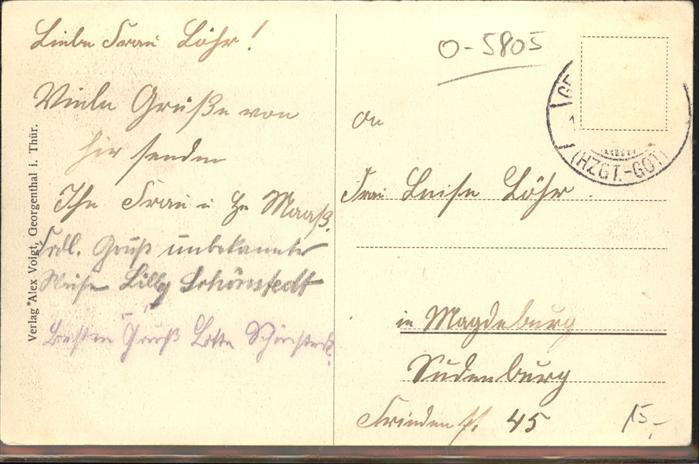 Liebe Frau Löhr!
Viele Grüße von
hier senden
Ihr Frau u. Maaß.
Frdl. Gruß unbekannter
Weise Lilly Schönstedt
Besten Gruß Lotte
Verlag Alex Voigt, Georgenthal i. Thür.
O-5805
GE
(HZGT.-GOT
An
Frau Luise Löhr.
in Magdeburg
Sudenburg
45
15,-